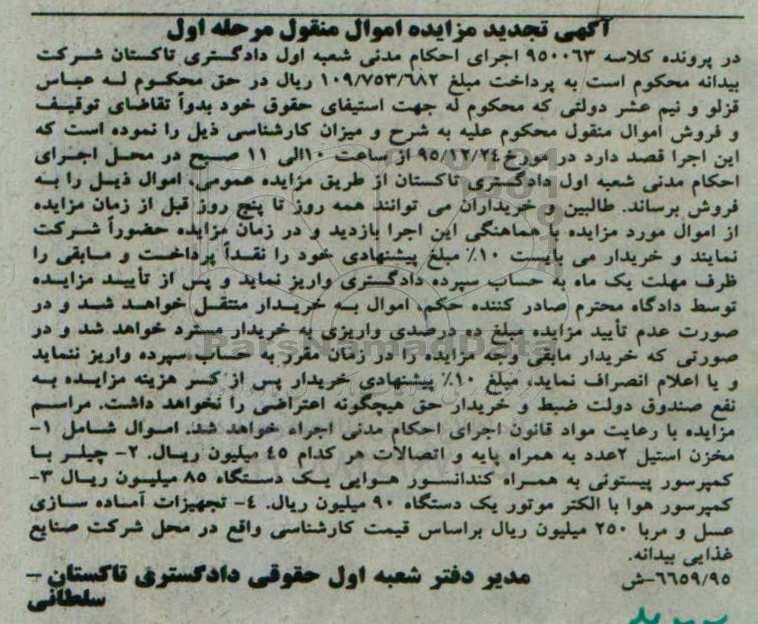 آگهی تجدید مزایده اموال منقول مرحله اول
در پرونده کلاسه ۹۵۰۰۶۳ اجرای احکام مدنی شعبه اول دادگستری تاکستان شرکت
بیدانه محکوم است به پرداخت مبلغ ۱۰۹/۷۵۳/۶۸۲ ریال در حق محکوم له عباس
قزلو و نیم عشر دولتی که محکوم له جهت استیفای حقوق خود بدواً تقاضای توقیف
و فروش اموال منقول محکوم علیه به شرح و میزان کارشناسی ذیل را نموده است که
این اجرا قصد دارد در مورخ ۹۵/۱۲/۲۴ از ساعت ۱۰الی ۱۱ صبح در محل اجرای
احکام مدنی شعبه اول دادگستری تاکستان از طریق مزایده عمومی، اموال ذیل را به
فروش برساند. طالبین و خریداران می توانند همه روز تا پنج روز قبل از زمان مزایده
از اموال مورد مزایده با هماهنگی این اجرا بازدید و در زمان مزایده حضوراً شرکت
نمایند و خریدار می بایست ۱۰٪ مبلغ پیشنهادی خود را نقداً پرداخت و مابقی را
ظرف مهلت یک ماه به حساب سپرده دادگستری واریز نماید و پس از تأیید مزایده
توسط دادگاه محترم صادر کننده حکم، اموال به خریدار منتقل خواهد شد و در
صورت عدم تأیید مزایده مبلغ ده درصدی واریزی به خریدار مسترد خواهد شد و در
صورتی که خریدار مابقی وجه مزایده را در زمان مقرر به حساب سپرده واریز ننماید
و یا اعلام انصراف نماید، مبلغ ۱۰٪ پیشنهادی خریدار پس از کسر هزینه مزایده به
نفع صندوق دولت ضبط و خریدار حق هیچگونه اعتراضی را نخواهد داشت. مراسم
مزایده با رعایت مواد قانون اجرای احکام مدنی اجراء خواهد شد. اموال شامل ۱-
مخزن استیل ۲عدد به همراه پایه و اتصالات هر کدام ۴۵ میلیون ریال. ۲- چیلر با
کمپرسور پیستونی به همراه کندانسور هوایی یک دستگاه ۸۵ میلیون ریال ۳-
کمپرسور هوا با الکتر موتور یک دستگاه ۹۰ میلیون ریال. ۴- تجهیزات آماده سازی
عسل و مربا ۲۵۰ میلیون ریال براساس قیمت کارشناسی واقع در محل شرکت صنایع
غذایی بیدانه.
۶۶۵۹/۹۵-ش
مدیر دفتر شعبه اول حقوقی دادگستری تاکستان –
سلطانی
ParsNamadData